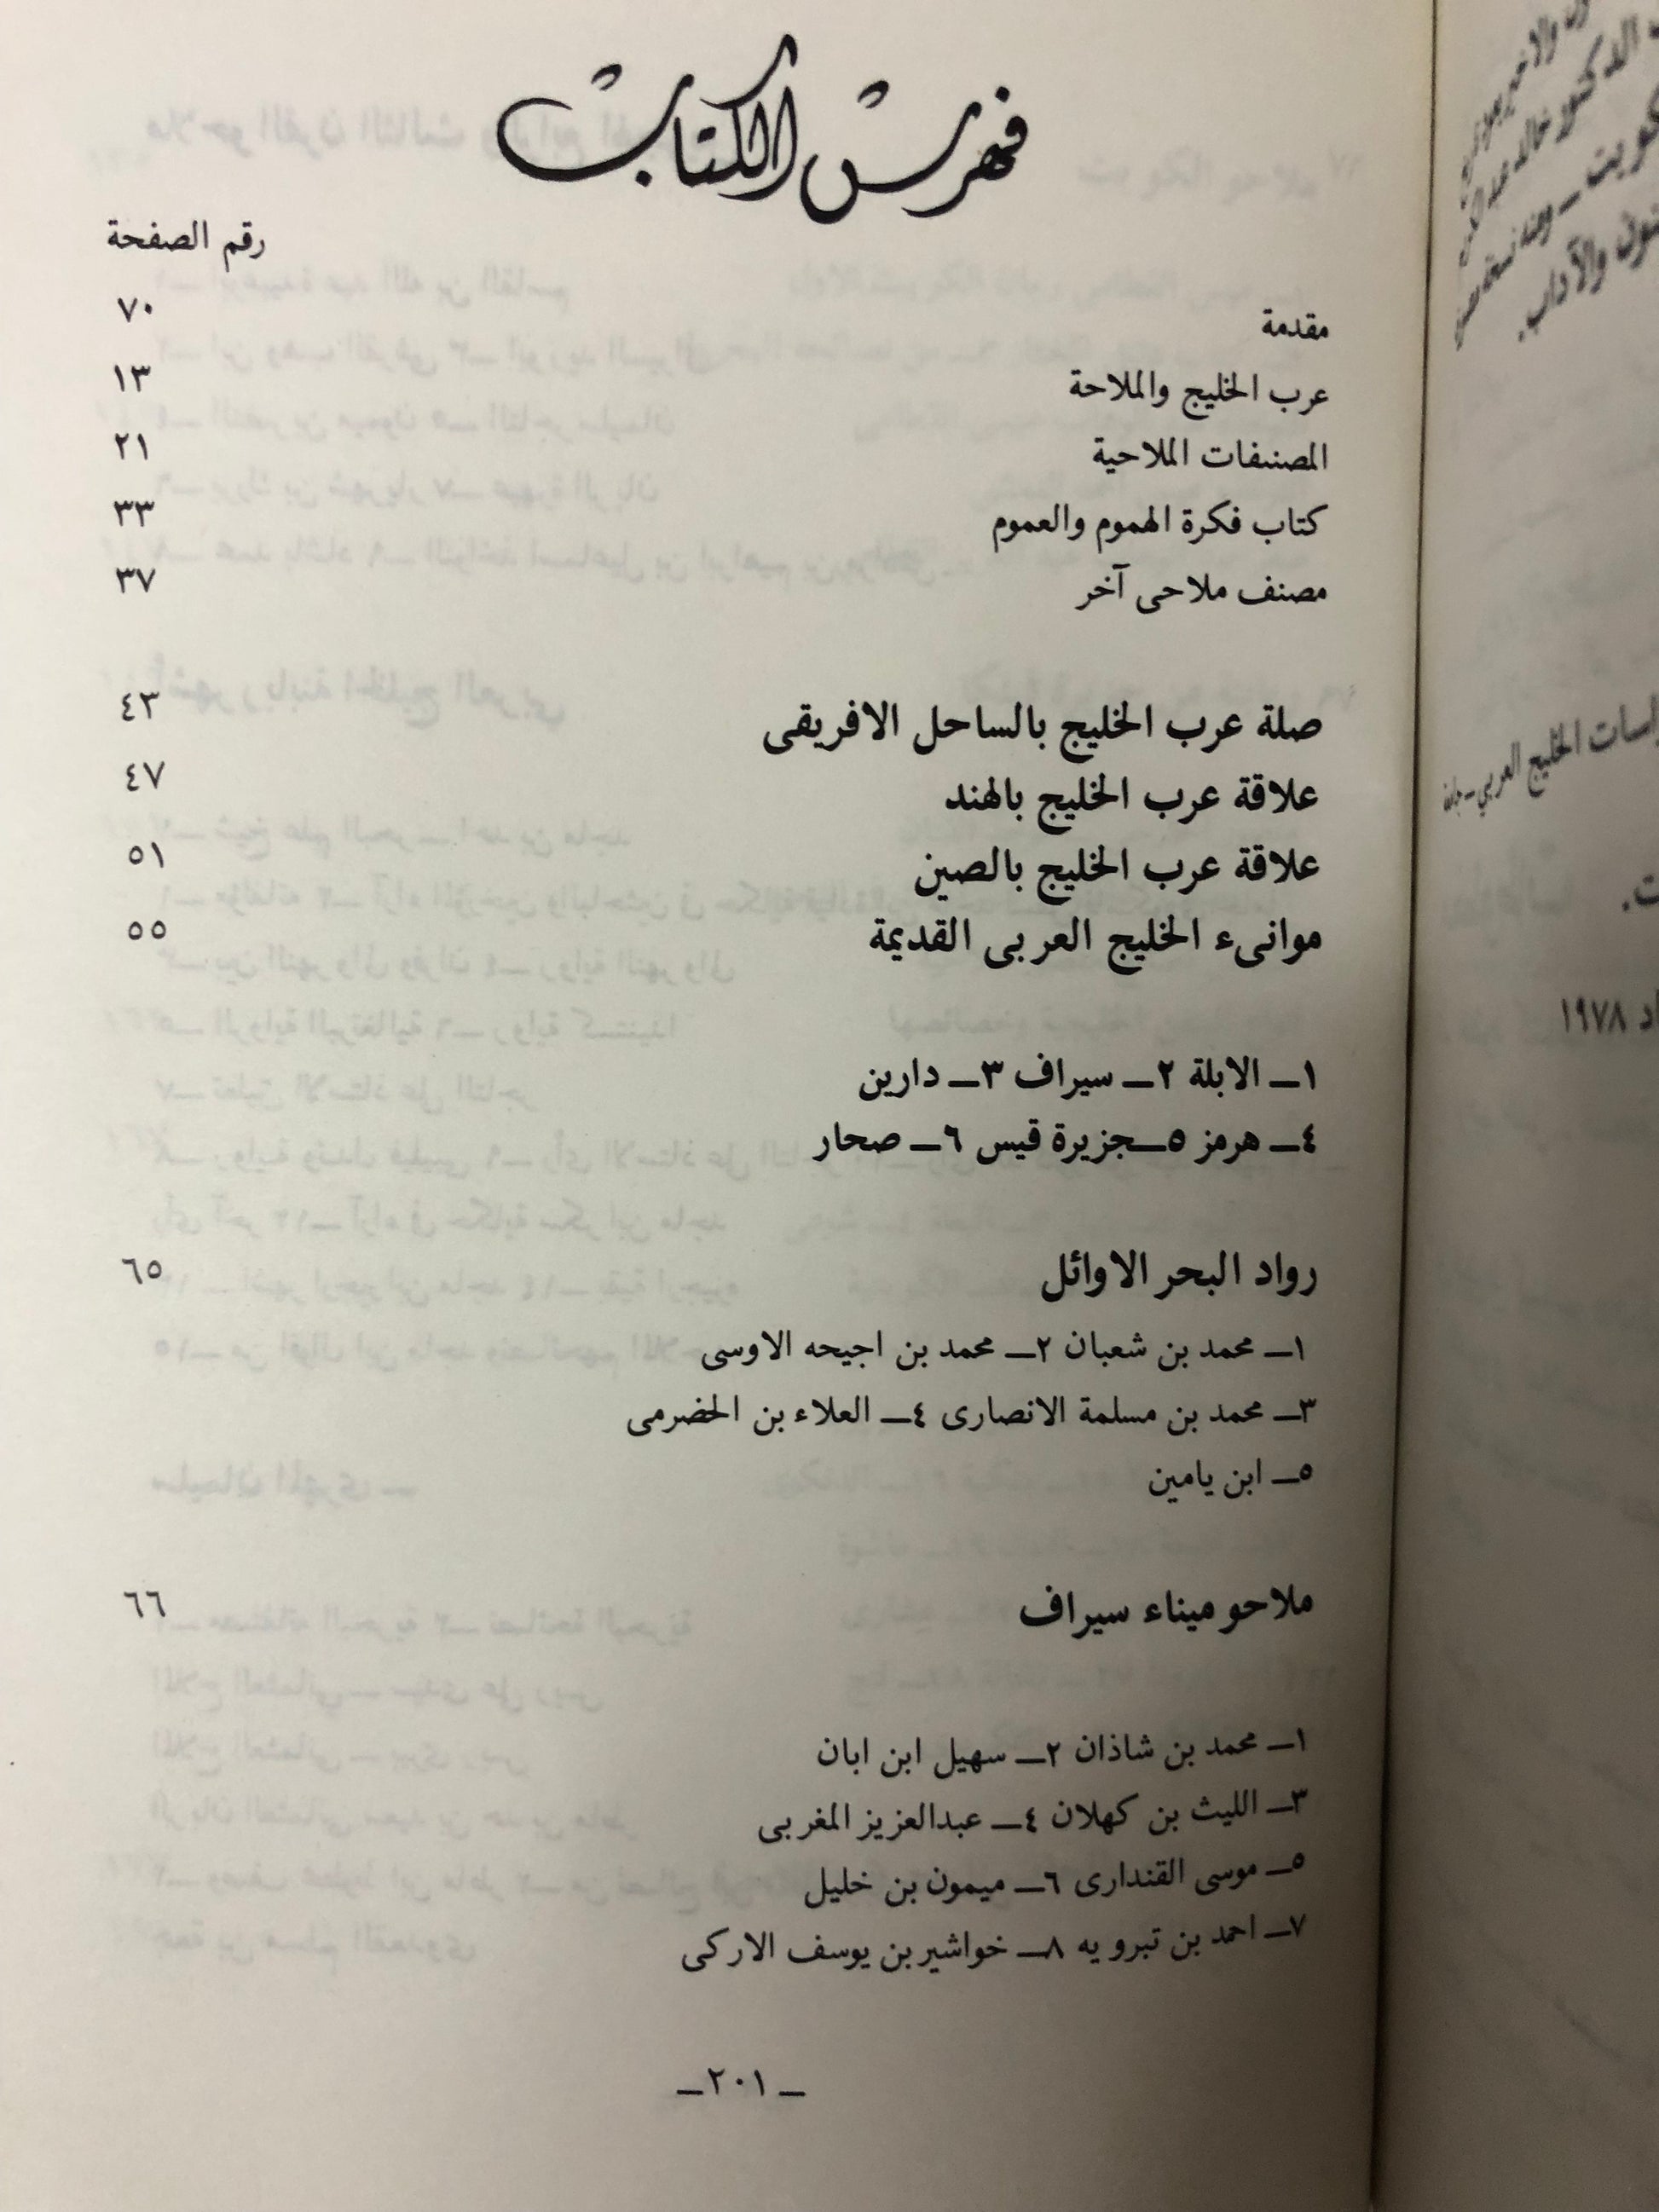 فهرس الكتاب
رقم الصفحة
مقدمة ٧٠
عرب الخليج والملاحة ١٣
المصنفات الملاحية ٢١
كتاب فكرة الهموم والعموم ٣٣
مصنف ملاحى آخر ٣٧
صلة عرب الخليج بالساحل الافريقى ٤٣
علاقة عرب الخليج بالهند ٤٧
علاقة عرب الخليج بالصين ٥١
موانىء الخليج العربى القديمة ٥٥
١ــ الابلة ٢ــ سيراف ٣ــ دارين
٤ــ هرمز ٥ــجزيرة قيس ٦ــ صحار
رواد البحر الاوائل ٦٥
١ــ محمد بن شعبان ٢ــ محمد بن اجيحه الاوسى
٣ــ محمد بن مسلمة الانصارى ٤ــ العلاء بن الحضرمى
٥ــ ابن يامين
ملاحو ميناء سيراف ٦٦
١ــ محمد بن شاذان ٢ــ سهيل ابن ابان
٣ــ الليث بن كهلان ٤ــ عبدالعزيز المغربى
٥ــ موسى القندارى ٦ــ ميمون بن خليل
٧ــ احمد بن تبرويه ٨ــ خواشيربن يوسف الاركى
ــ ٢٠١ــ
الدكتور خالد
والآداب.
الخليج العربي
١٩٧٨